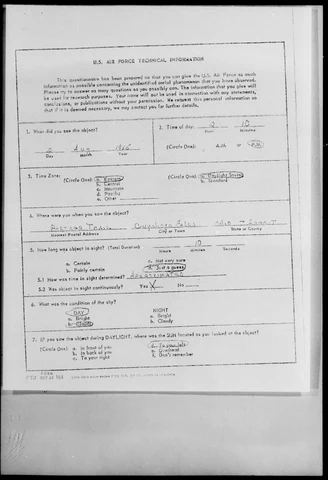 U.S. AIR FORCE TECHNICAL INFORMATION
This questionnaire has been prepared so that you can give the U.S. Air Force as much
information as possible concerning the unidentified aerial phenomenon that you have observed.
Please try to answer as many questions as you possibly can. The information that you give will
be used for research purposes. Your name will not be used in connection with any statements,
conclusions, or publications without your permission. We request this personal information so
that if it is deemed necessary, we may contact you for further details.
1. When did you see the object?
2. Time of day: 10
Hour Minutes
2 Aug
Day Month Year
(Circle One): A.M. or P.M.
3. Time Zone:
(Circle One): a. Eastern
b. Central
c. Mountain
d. Pacific
e. Other
(Circle One): a. Daylight Saving
b. Standard
4. Where were you when you saw the object?
Cuyahoga Falls
Nearest Postal Address City or Town State or County
5. How long was object in sight? (Total Duration) 10
Hours Minutes Seconds
a. Certain c. Not very sure
b. Fairly certain d. Just a guess
5.1 How was time in sight determined?
5.2 Was object in sight continuously? Yes X No
6. What was the condition of the sky?
DAY NIGHT
a. Bright a. Bright
b. Cloudy b. Cloudy
7. If you saw the object during DAYLIGHT, where was the SUN located as you looked at the object?
(Circle One): a. In front of you d. To your left
b. In back of you e. Overhead
c. To your right f. Don't remember
FORM